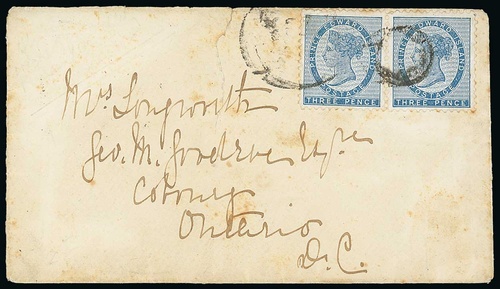 PRINCE EDWARD ISLAND POSTAGE
THREE PENCE
PRINCE EDWARD ISLAND POSTAGE
THREE PENCE
Mrs Longworth
Geo. M. Goodeve Esqre
Cobourg
Ontario
D. C.